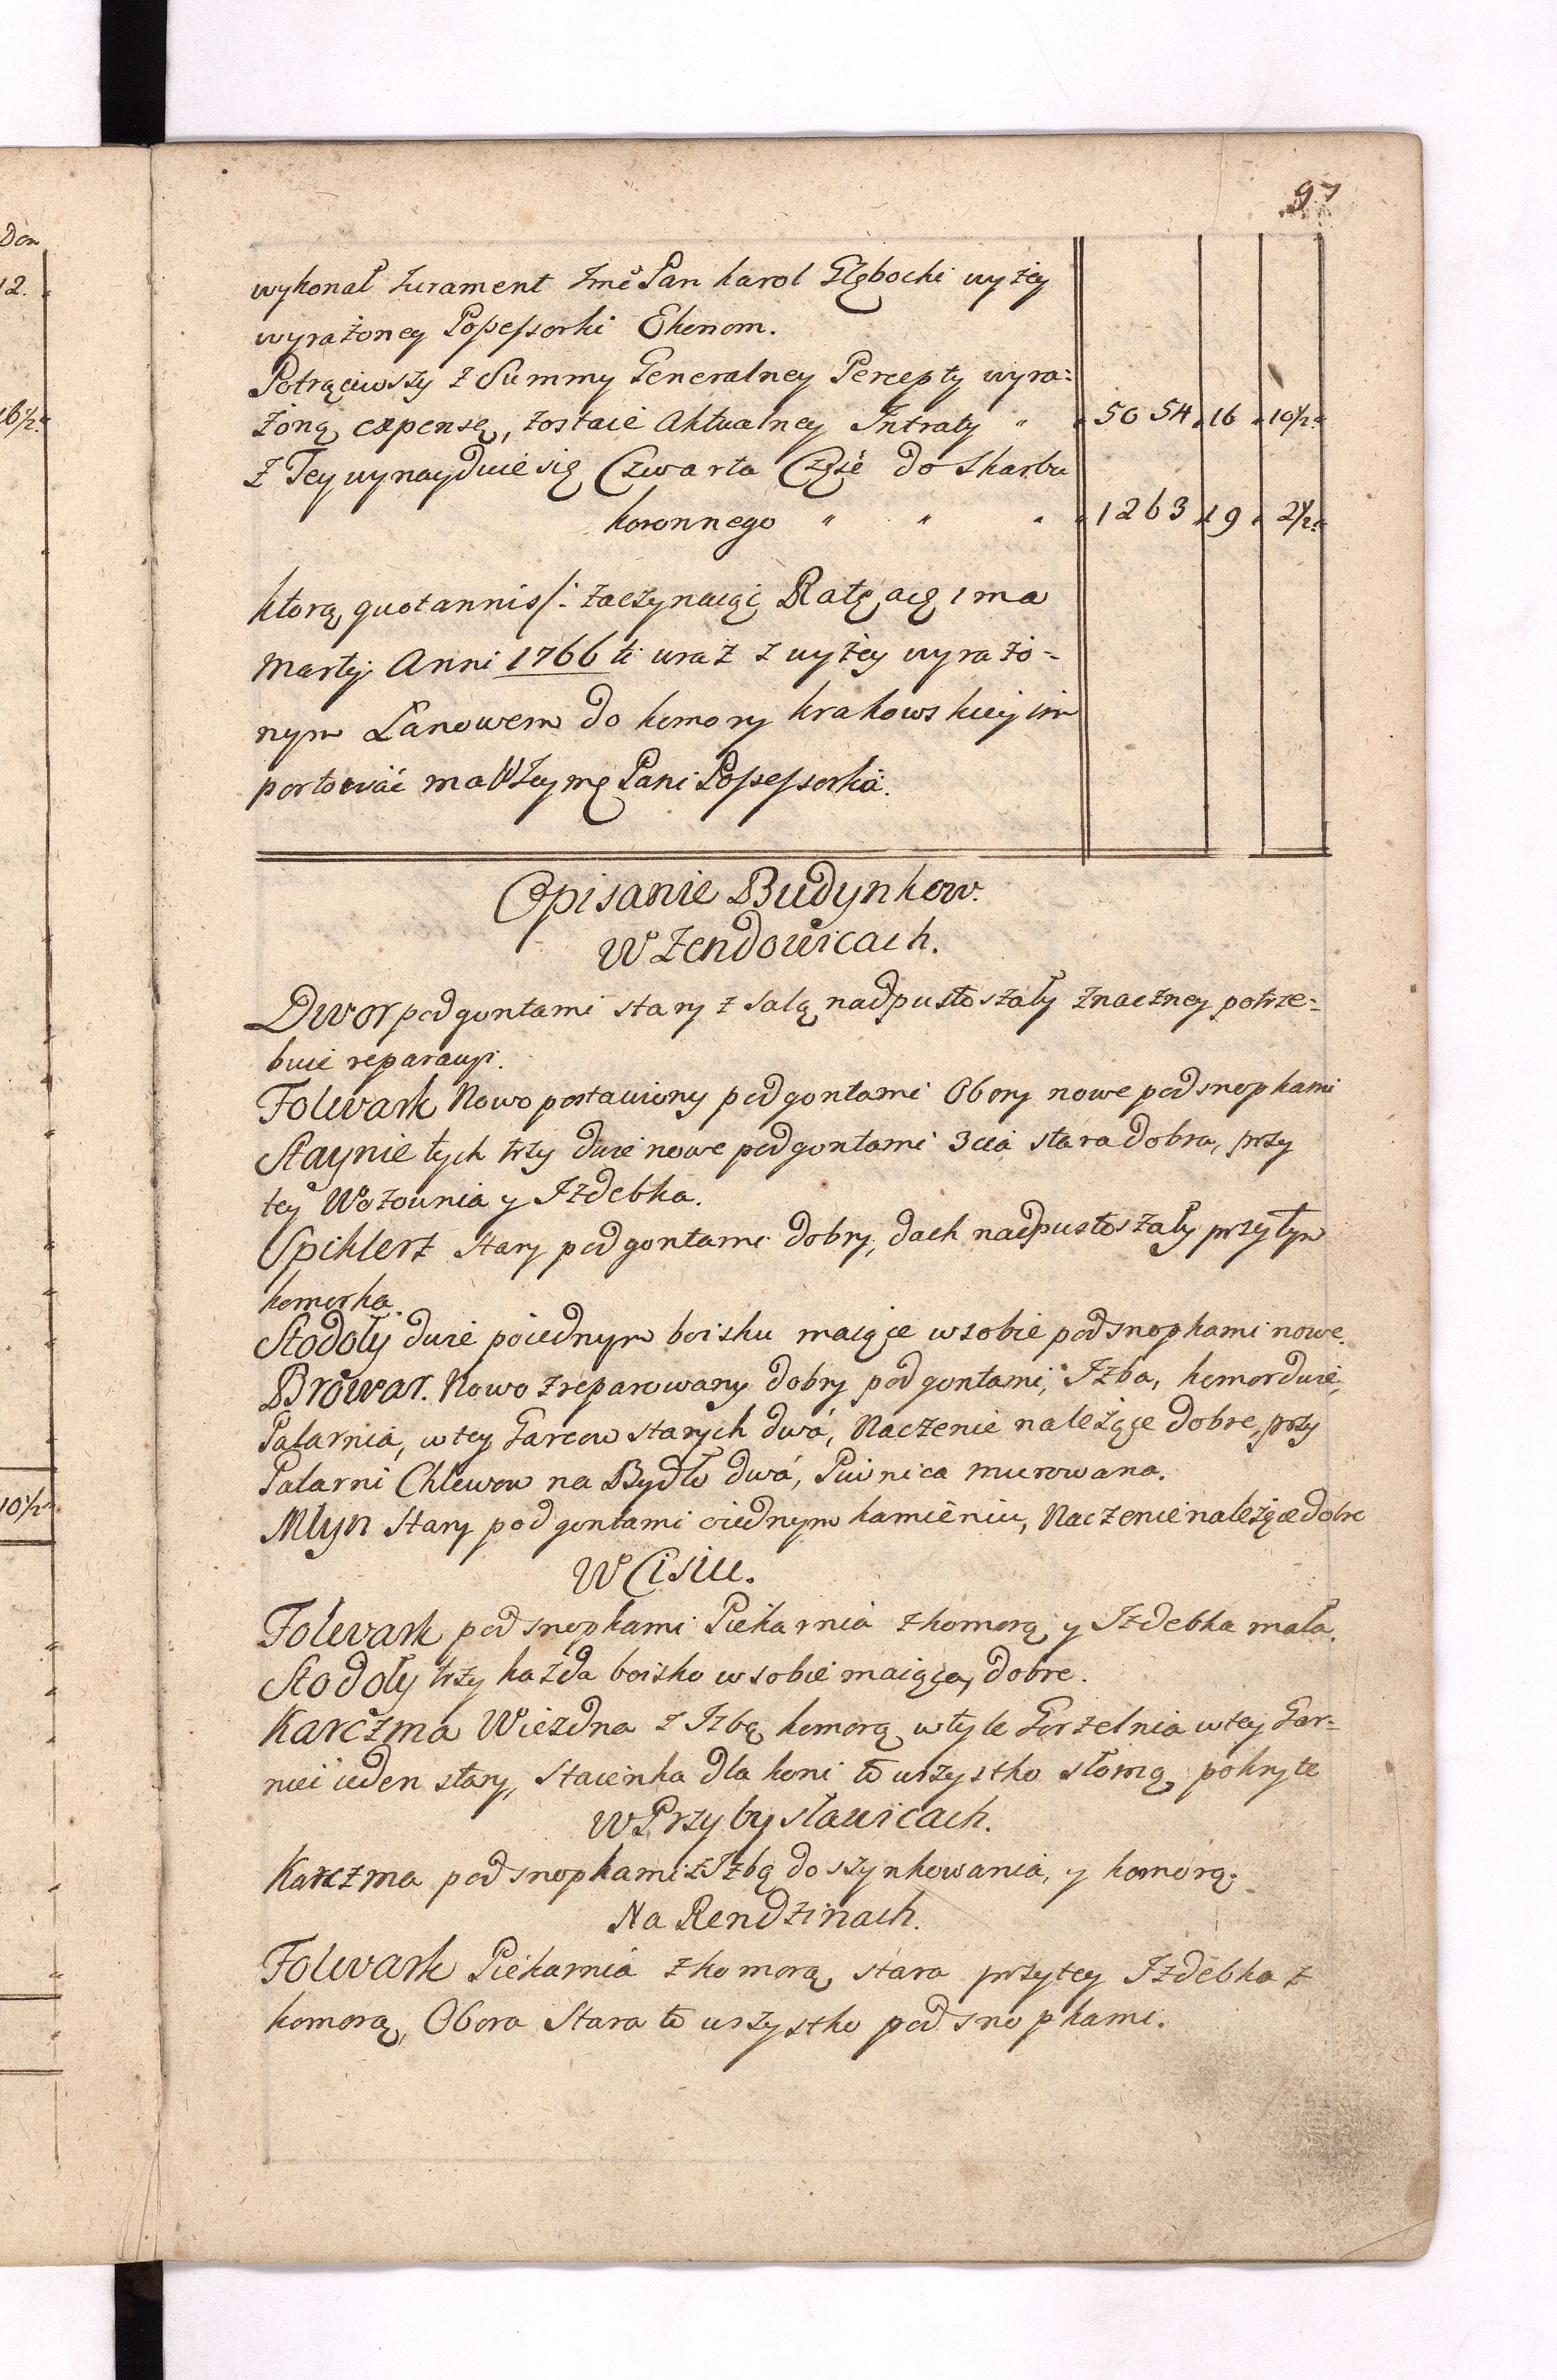 97
Den
12.
16½.
10½
wykonał Jurament Jmć Pan karol Głębocki wyżey
wyrażoney Possessorki Ekonom.
Potrąciwszy z Summy Generalney Percepty wyra=
żoną expensę, zostaie Aktualney Intraty " 5054 16 10½
z Tey wynayduie się Czwarta Część do Skarbu
koronnego " " " 1263 19 2½
ktorą quotannis /: zaczynaiąc Ratę a
Martij Anni 1766ti wraz z wyżey wyrażo=
nym Łanowem do komory krakowskiey im
portować ma Pani Possessorka.
Opisanie Budynkow.
W Zendowicach.
Dwor pod gontami stary z salą nadpustoszały znaczney potrze=
buie reparacyi.
Folwark Nowo postawiony pod gontami Obory nowe pod snopkami
Staynie tych trzy dwie nowe pod gontami 3cia stara dobra, przy
tey Wozownia y Izdebka.
Spiklerz stary pod gontami dobry, dach nadpustoszały przy tym
komorka.
Stodoły dwie po iednym boisku maiące w sobie pod snopkami nowe.
Browar. Nowo zreparowany dobry pod gontami, Izba, komor dwie,
Palarnia, w tey Garcow starych dwa, Naczenie należące dobre, przy
Palarni Chlewow na Bydło dwa, Piwnica murowana.
Młyn stary pod gontami o iednym kamieniu, Naczenie należące dobre
W Cisiu.
Folwark pod snopkami Piekarnia z komorą y Izdebka mała.
Stodoły trzy każda boisko w sobie maiąca, dobre.
Karczma Wiezdna z Izbą komorą w tyle Gorzelnia w tey Gar=
niec ieden stary, Staienka dla koni to wszystko słomą pokryte
W Przybysławicach.
Karczma pod snopkami z Izbą do szynkowania, y komorą.
Na Rendzinach.
Folwark Piekarnia z komorą stara przy tey Izdebka z
komorą, Obora Stara to wszystko pod snopkami.